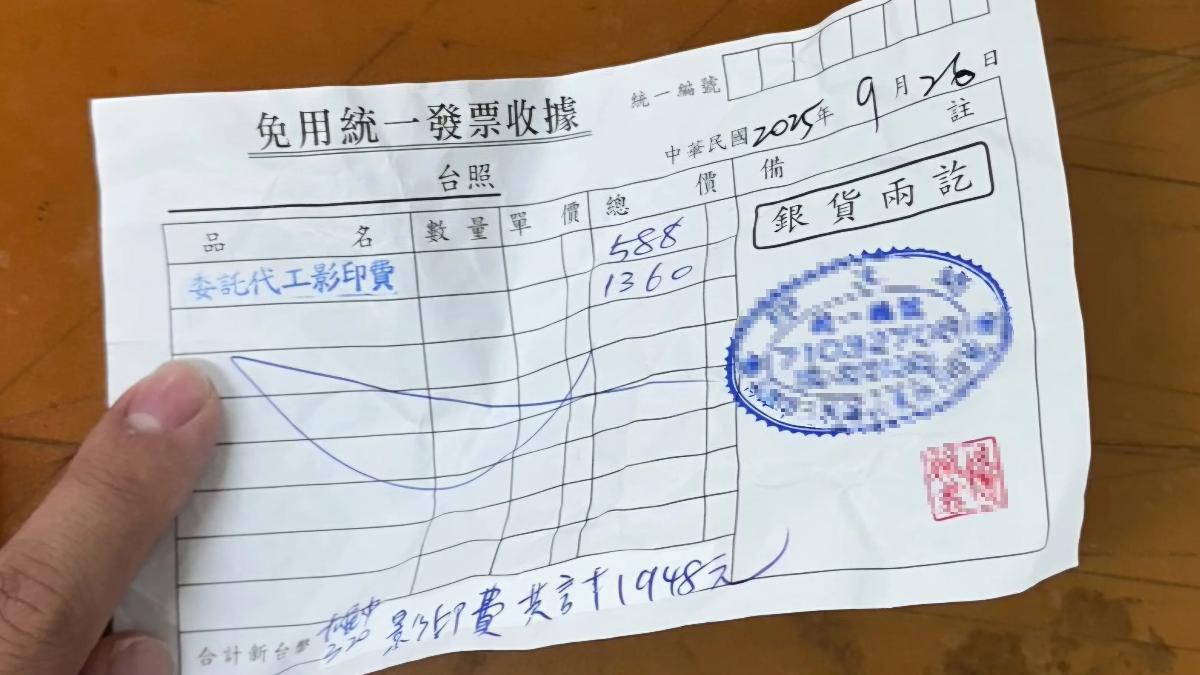 統一編號
免用統一發票收據
中華民國2025年9月26日
台照
品名 數量 單價 總價 備註
588
委託代工影印費 1360
銀貨兩訖
統一編號
合計新台幣
影印費共計1948元